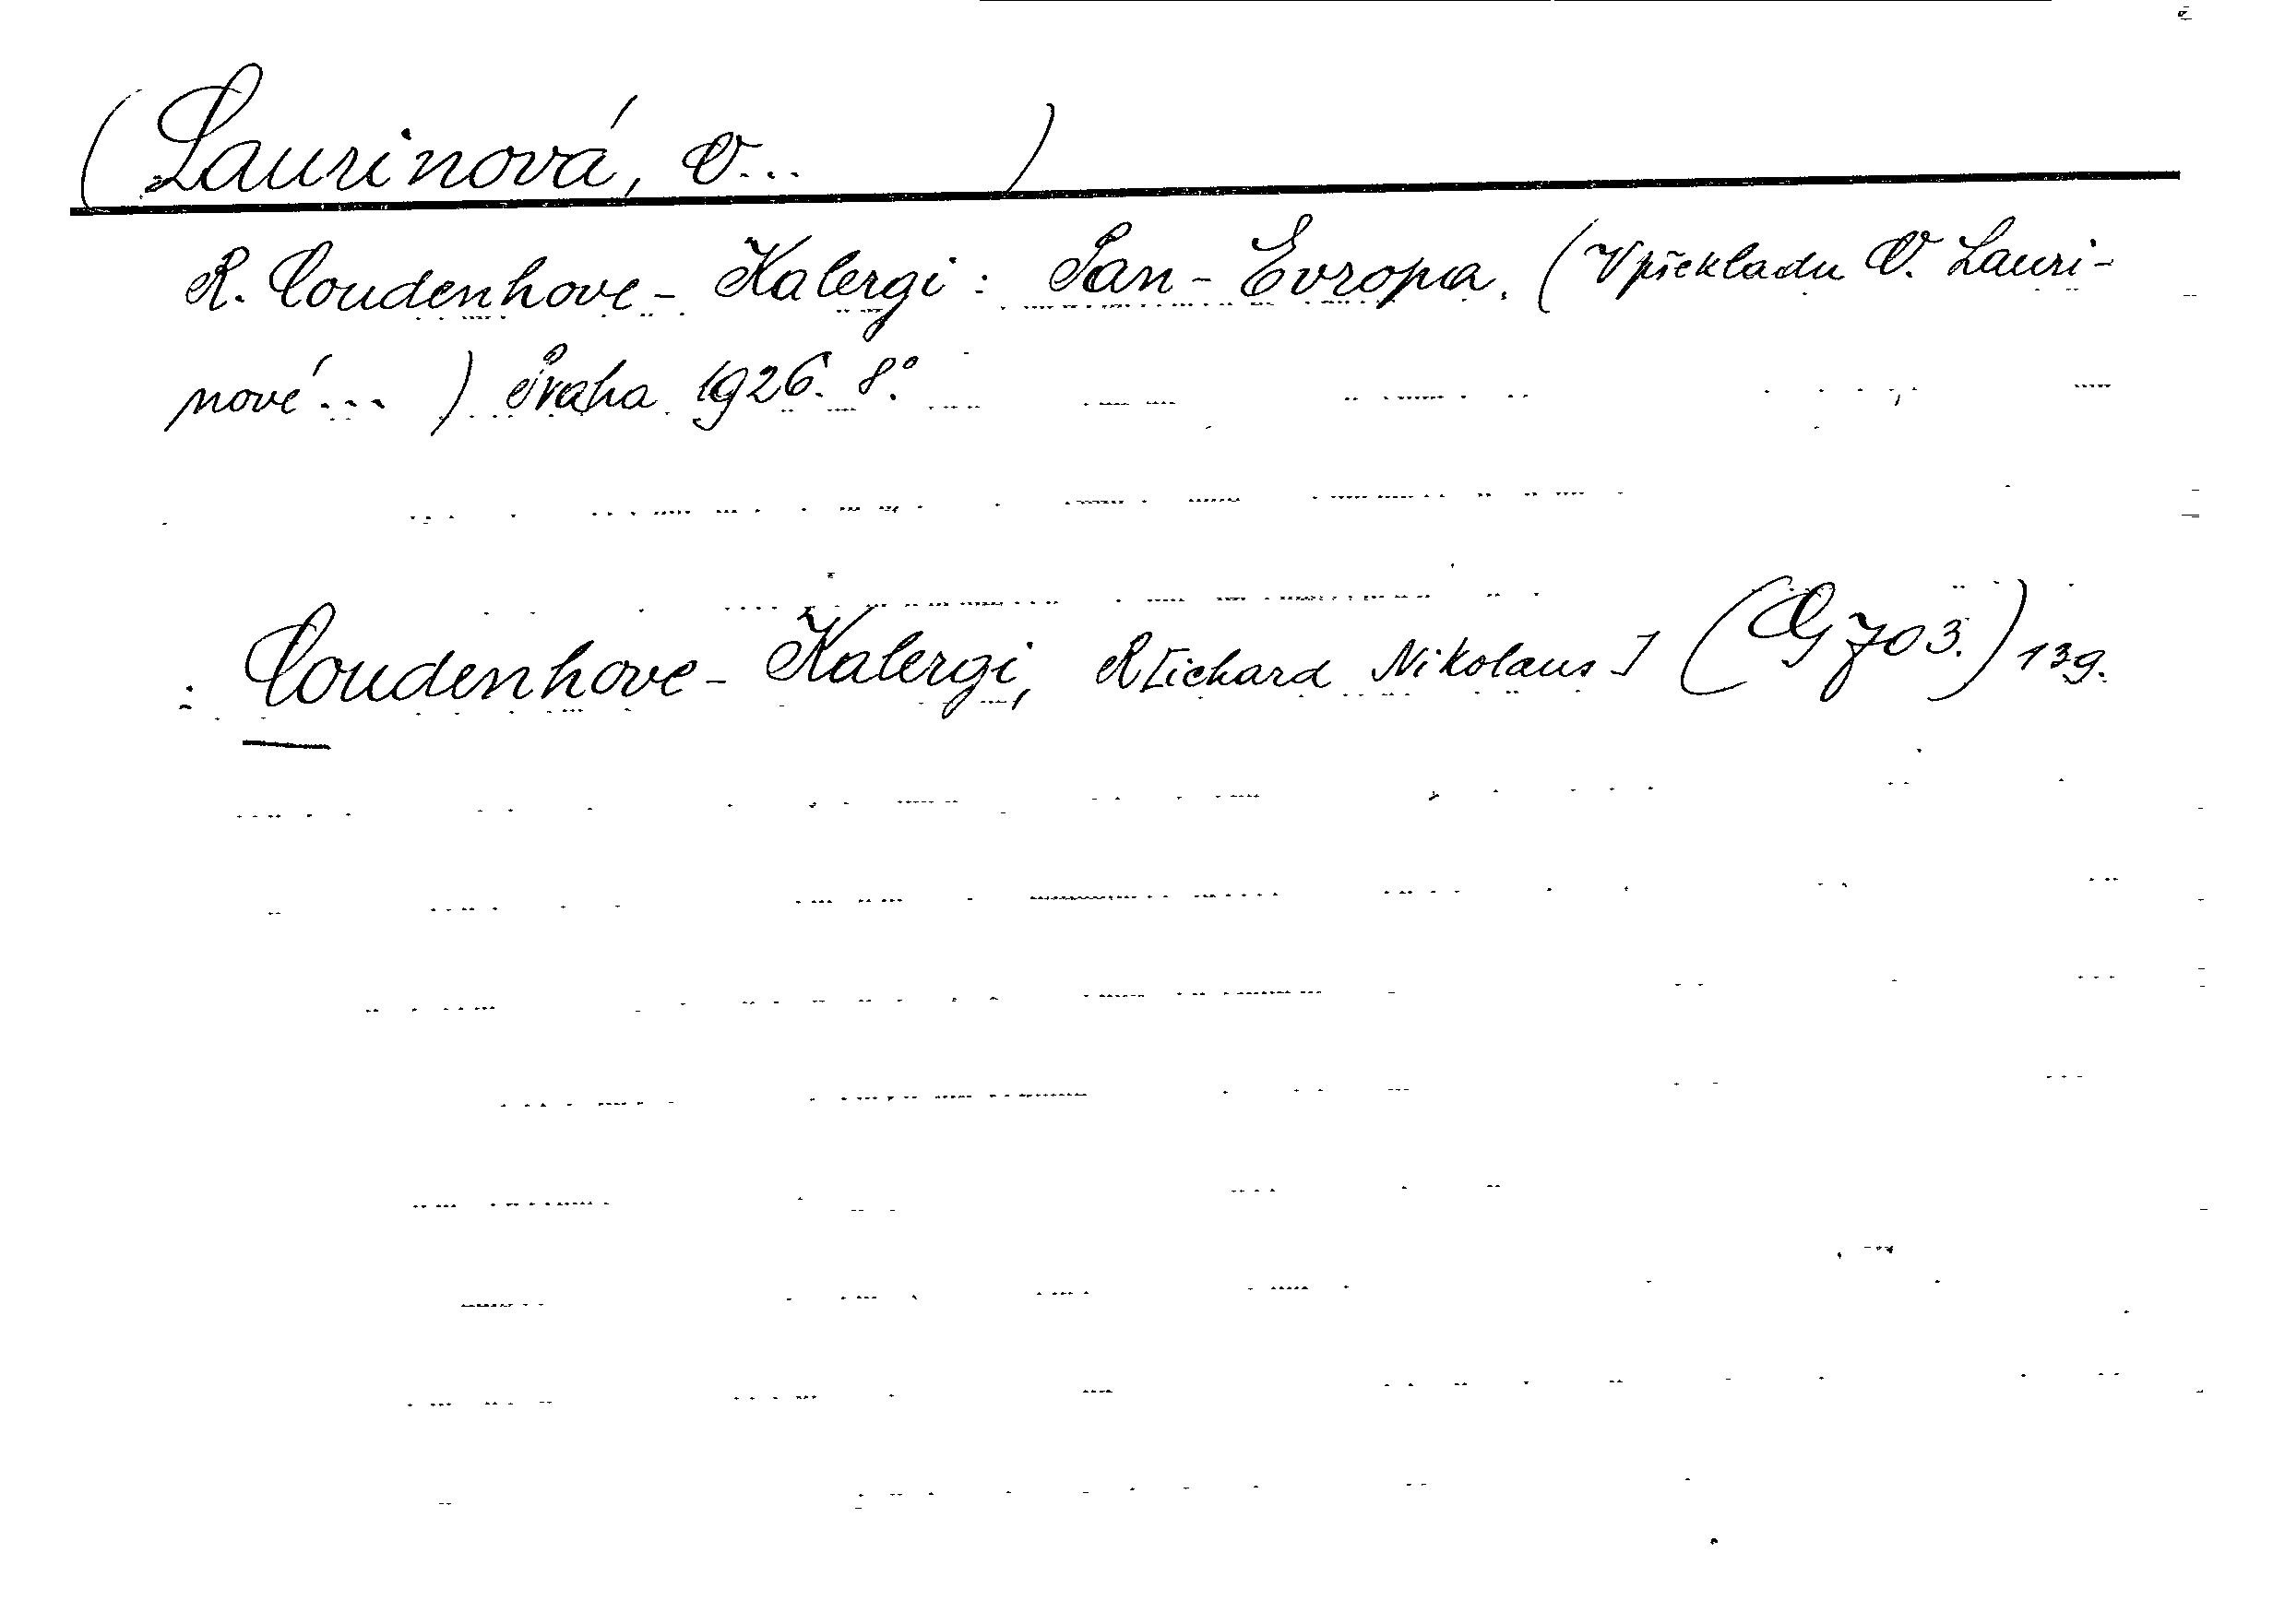 (Laurinová, V... )
R. Coudenhove - Kalergi : Pan - Evropa. (V překladu V. Lauri-
nové ... ) Praha 1926. 8°.
: Coudenhove - Kalergi, R[ichard Nikolaus] (G 703.) 139.